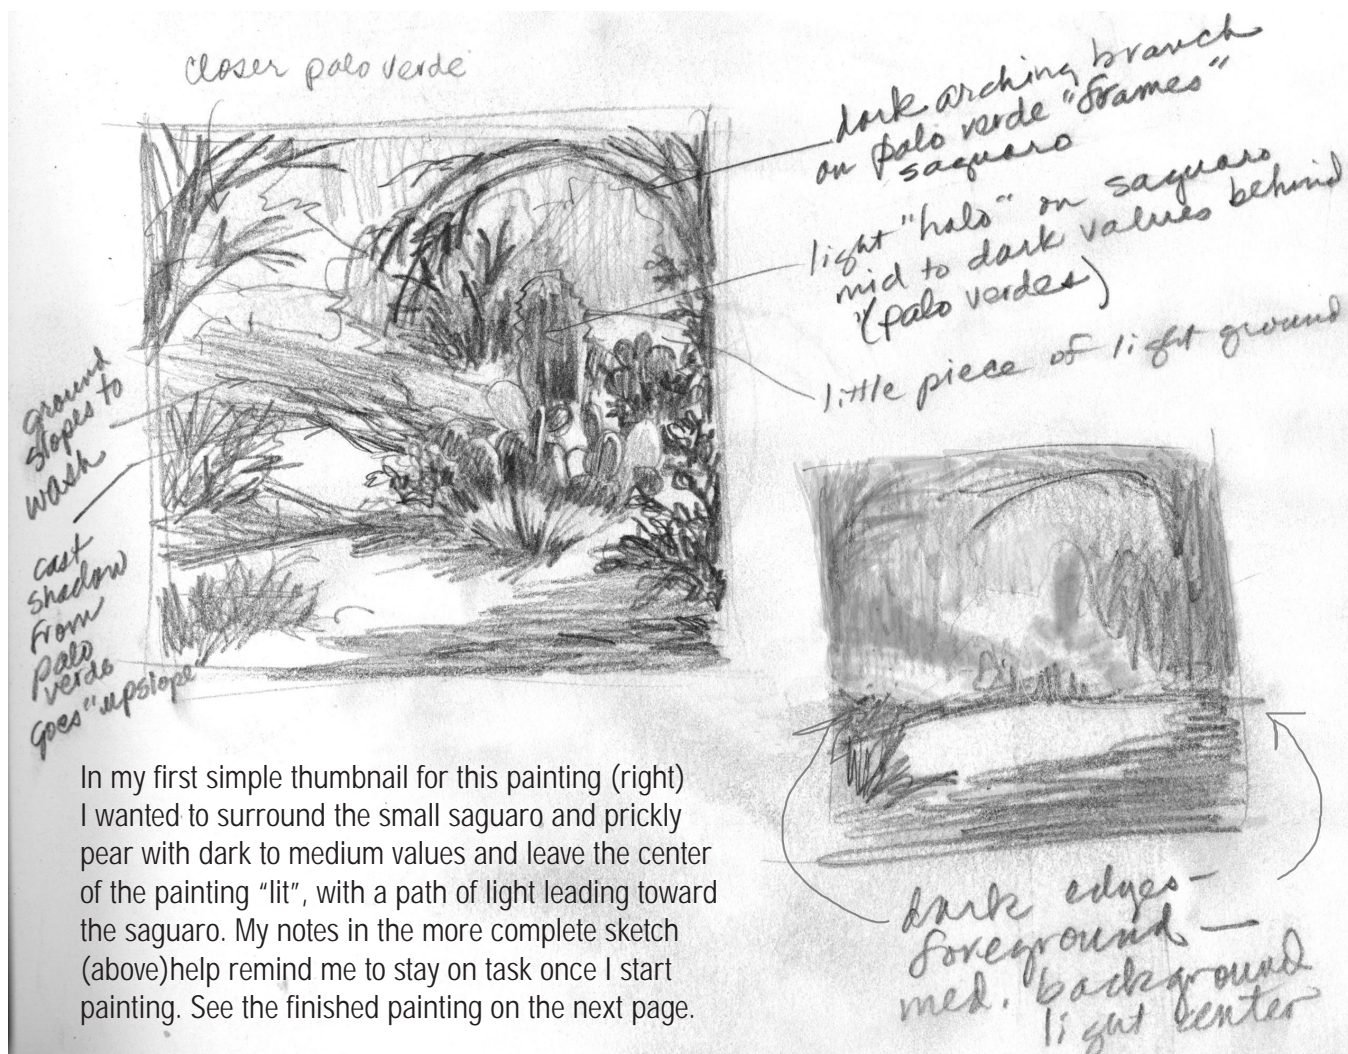 closer palo verde
dark arching branch
on palo verde "frames"
saguaro
light "halo" on saguaro
mid to dark values behind
(palo verdes)
little piece of light ground
ground
slopes to
wash
cast
shadow
from
palo
verde
goes "upslope
In my first simple thumbnail for this painting (right)
I wanted to surround the small saguaro and prickly
pear with dark to medium values and leave the center
of the painting “lit”, with a path of light leading toward
the saguaro. My notes in the more complete sketch
(above)help remind me to stay on task once I start
painting. See the finished painting on the next page.
dark edges –
foreground —
med. background
light center